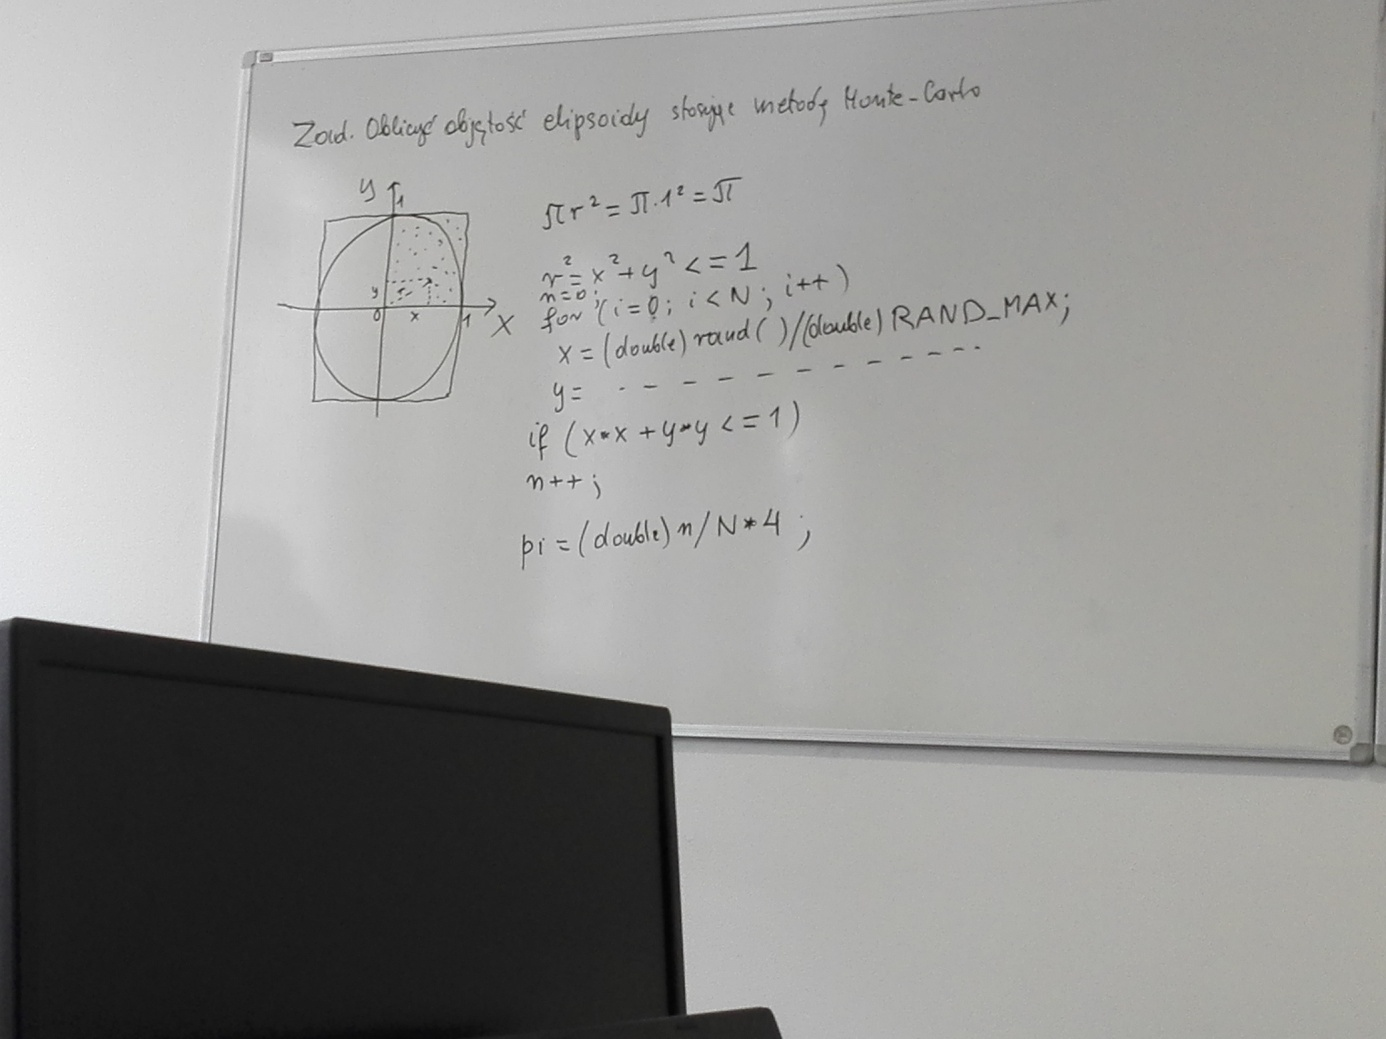 Zad. Obliczyć objętość elipsoidy stosując metodę Monte-Carlo
y
1
y
r
0
x
1
X
πr² = π·1² = π
r² = x² + y² <= 1
n=0;
for (i=0; i<N; i++)
x = (double) rand( )/(double) RAND_MAX;
y= - - - - - - - - - - -
if (x*x + y*y <= 1)
n++;
pi = (double) n/N*4 ;